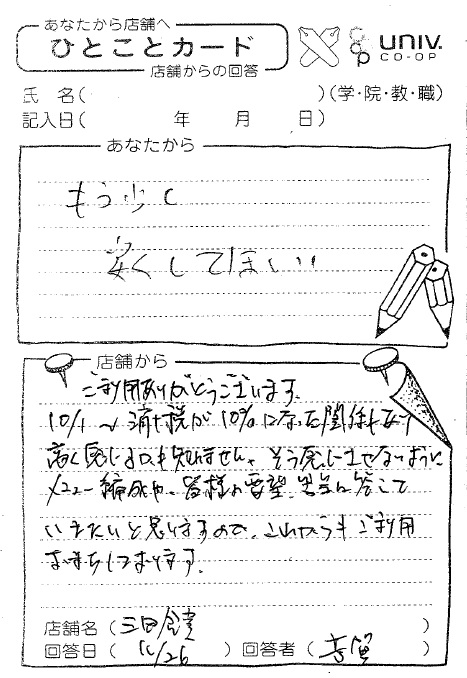 あなたから店舗へ
ひとことカード
店舗からの回答
UNIV.
CO-OP
氏 名( )(学・院・教・職)
記入日( 年 月 日)
あなたから
もう少し
安くしてほしい
店舗から
ご利用ありがとうございます。
10/1～消費税が10%になった関係もあり
高く感じるかも知れません。そう感じさせないように
メニュー編成や、皆様の要望、意見に答えて
いきたいと思いますので、これからもご利用
お待ちしております。
店舗名(三田食堂 )
回答日( 11/26 )回答者( )